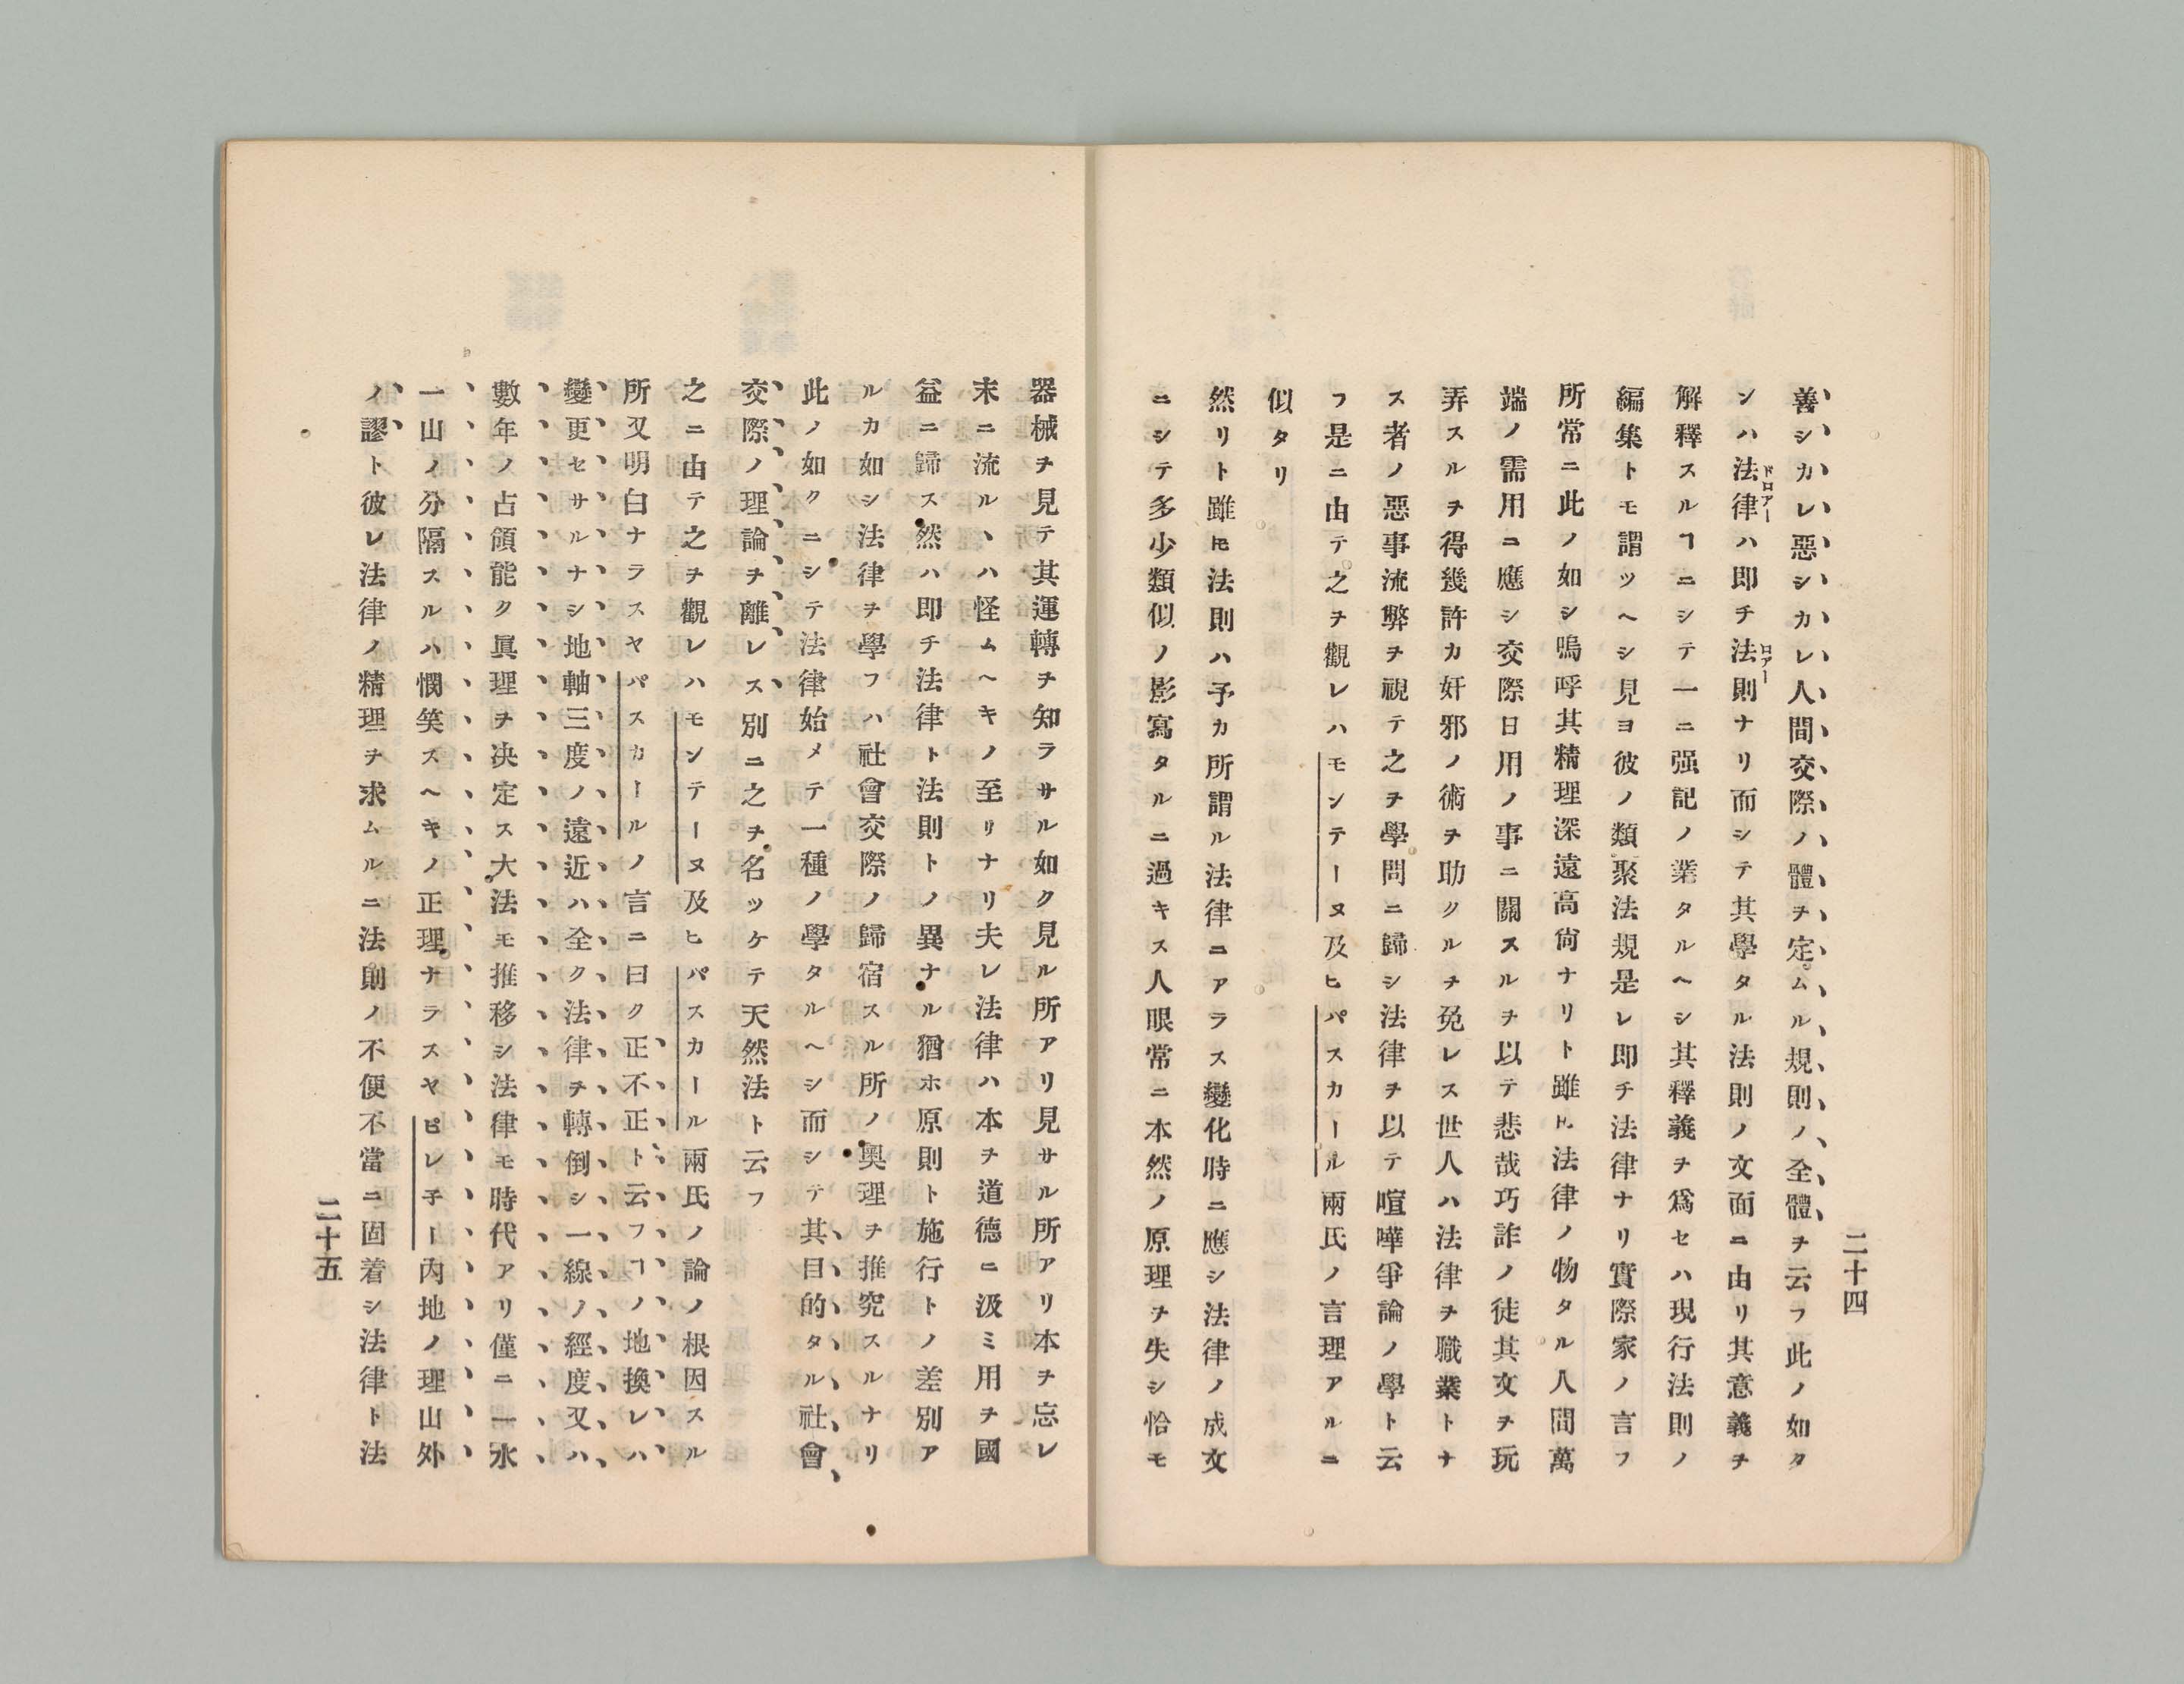 二十四
善シカレ惡シカレ人間交際ノ體ヲ定ムル規則ノ全體ヲ云フ此ノ如タ
ンハ法律ハ即チ法則ナリ而シテ其學タル法則ノ文面ニ由リ其意義ヲ
ドロアー
ロアー
解釋スルヿニシテ一ニ强記ノ業タルヘシ其釋義ヲ爲セハ現行法則ノ
編集トモ謂ツヘシ見ヨ彼ノ類聚法規是レ即チ法律ナリ實際家ノ言フ
所常ニ此ノ如シ嗚呼其精理深遠高尙ナリト雖𪜈法律ノ物タル人間萬
端ノ需用ニ應シ交際日用ノ事ニ關スルヲ以テ悲哉巧詐ノ徒其文ヲ玩
弄スルヲ得幾許カ奸邪ノ術ヲ助クルヲ免レス世人ハ法律ヲ職業トナ
ス者ノ惡事流弊ヲ視テ之ヲ學問ニ歸シ法律ヲ以テ喧嘩爭論ノ學ト云
フ是ニ由テ之ヲ觀レハモンテーヌ及ヒパスカール兩氏ノ言理アルニ
似タリ
然リト雖𪜈法則ハ予カ所謂ル法律ニアラス變化時ニ應シ法律ノ成文
ニシテ多少類似ノ影寫タルニ過キス人眼常ニ本然ノ原理ヲ失シ恰モ
器械ヲ見テ其運轉ヲ知ラサル如ク見ル所アリ見サル所アリ本ヲ忘レ
末ニ流ルヽハ怪ムヘキノ至リナリ夫レ法律ハ本ヲ道德ニ汲ミ用ヲ國
益ニ歸ス然ハ即チ法律ト法則トノ異ナル猶ホ原則ト施行トノ差別ア
ルカ如シ法律ヲ學フハ社會交際ノ歸宿スル所ノ奧理ヲ推究スルナリ
此ノ如クニシテ法律始メテ一種ノ學タルヘシ而シテ其目的タル社會
交際ノ理論ヲ離レス別ニ之ヲ名ツケテ天然法ト云フ
之ニ由テ之ヲ觀レハモンテーヌ及ヒパスカール兩氏ノ論ノ根因スル
所又明白ナラスヤパスカールノ言ニ曰ク正不正ト云フヿノ地換レハ
變更セサルナシ地軸三度ノ遠近ハ全ク法律ヲ轉倒シ一線ノ經度又ハ
數年ノ占領能ク眞理ヲ决定ス大法モ推移シ法律モ時代アリ僅ニ一水
一山ノ分隔スルハ憫笑スヘキノ正理ナラスヤピレ子ー内地ノ理山外
ノ謬ト彼レ法律ノ精理ヲ求ムルニ法則ノ不便不當ニ固着シ法律ト法
二十五